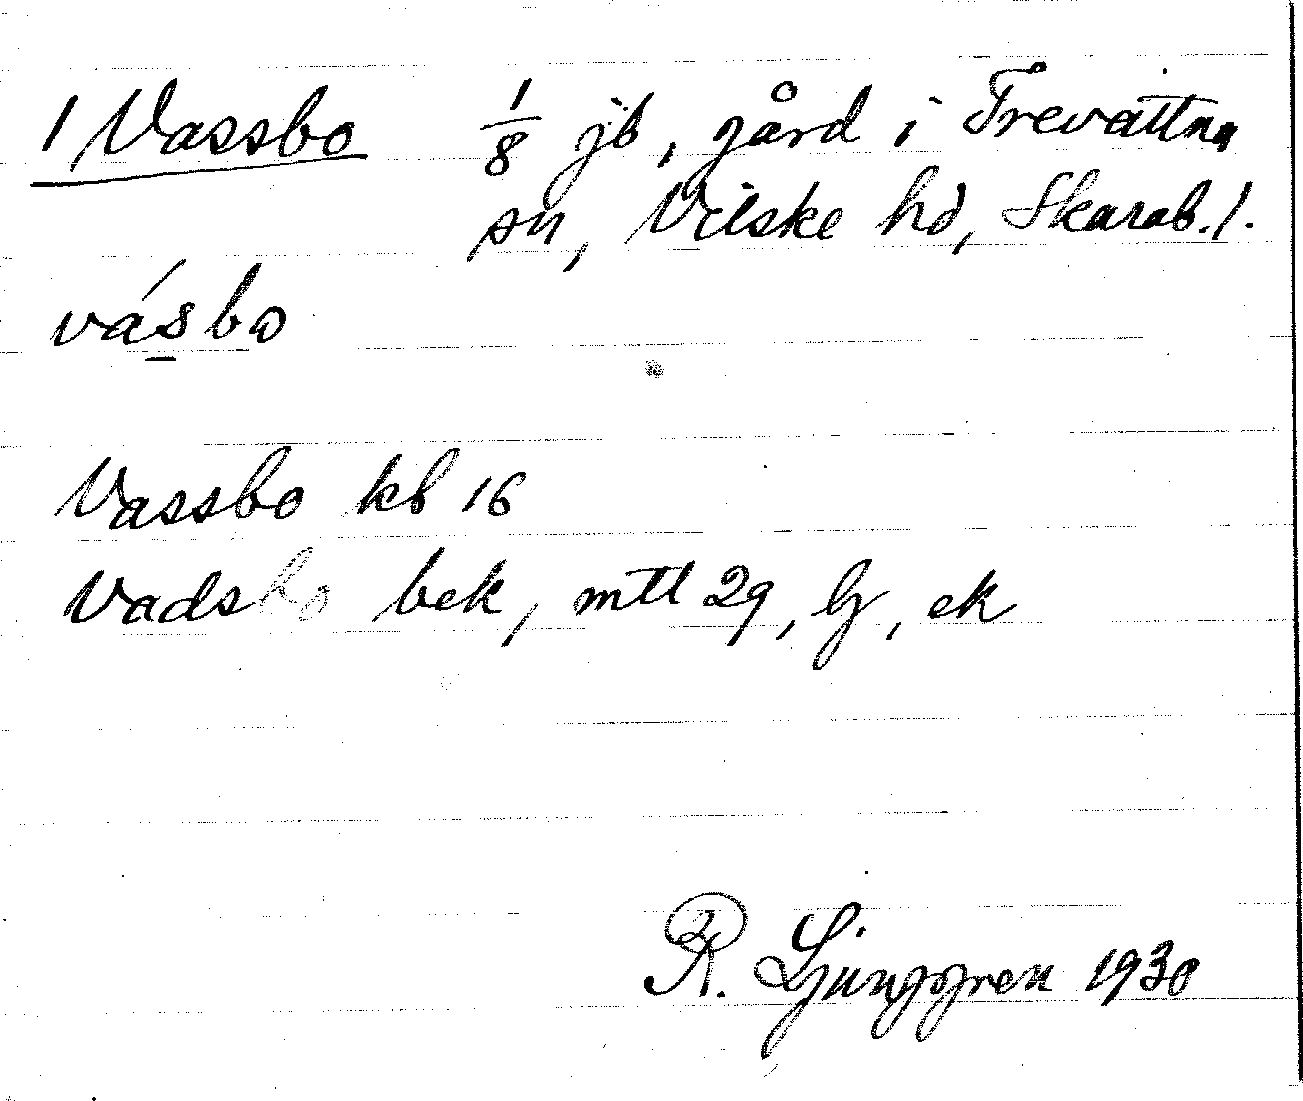 1 Vassbo 1/8 jb, gård i Trevattna
sn, Vilske hd, Skarab. l.
vásbo
Vassbo kb 16
Vadsbo bek, mtl 29, lj, ek
R. Ljunggren 1930